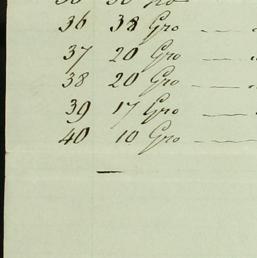 36 38 Gro
37 20 Gro
38 20 Gro
39 17 Gro
40 10 Gro